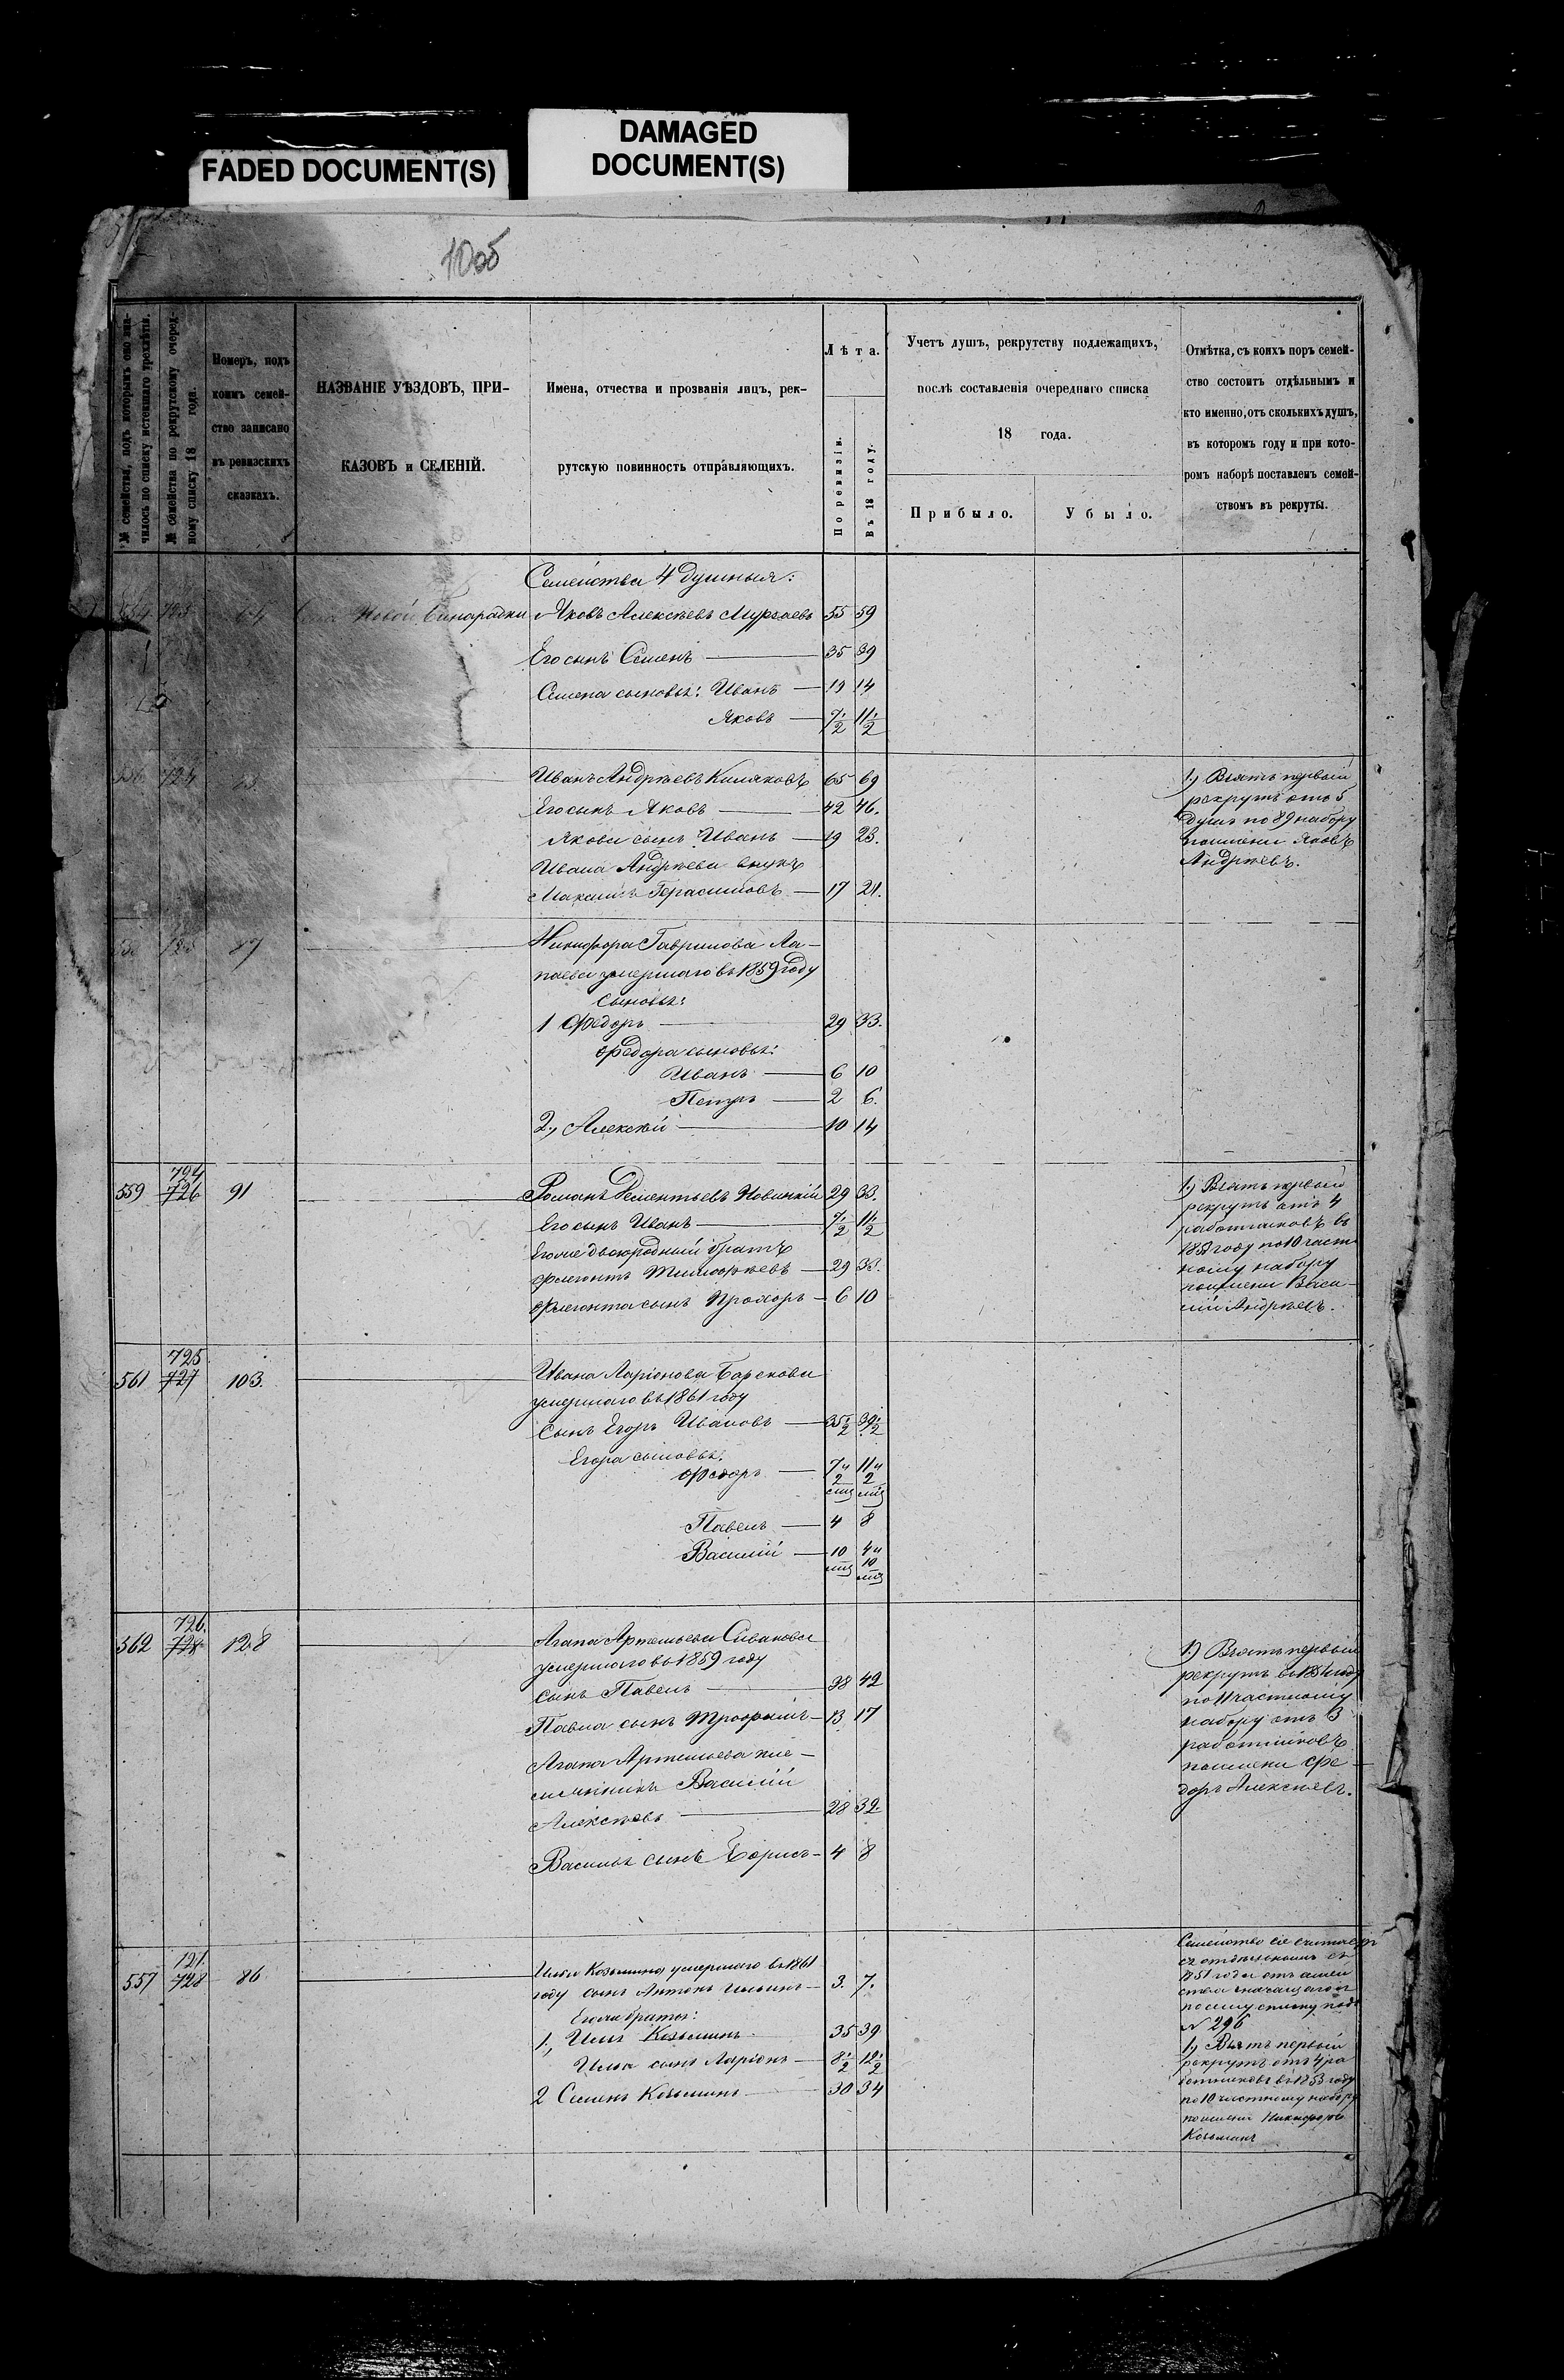 FADED DOCUMENT(S)
DAMAGED
DOCUMENT(S)
10об
№ семейства, подъ которымъ оно зна-
чилось по списку истекшаго трехлѣтія.
№ семейства по рекрутскому очеред-
ному списку 18 года.
Номеръ, подъ
коимъ семей-
ство записано
въ ревизскихъ
сказкахъ.
НАЗВАНІЕ УѢЗДОВЪ, ПРИ-
КАЗОВЪ и СЕЛЕНІЙ.
Имена, отчества и прозванія лицъ, рек-
рутскую повинность отправляющихъ.
Лѣта.
По ревизіи.
Въ 18 году.
Учетъ душъ, рекрутству подлежащихъ,
послѣ составленія очереднаго списка
18 года.
Прибыло.
Убыло.
Отмѣтка, съ коихъ поръ семей-
ство состоитъ отдѣльнымъ и
кто именно, отъ сколькихъ душъ,
въ которомъ году и при кото-
ромъ наборѣ поставленъ семей-
ствомъ въ рекруты.
Семейства 4 душныя:
Новой Бинарадки Яковъ Алексѣевъ 55 59
Его сынъ Семенъ 35 39
Семена сыновья: Иванъ 14
Яковъ 7 1/2 11 1/2
724 Иванъ Андрѣевъ 65 69
Его сынъ Яковъ 42 46.
Якова сынъ Иванъ 19 23.
Ивана Андрѣева внукъ
Максимъ Герасимовъ 17 21.
1) Взятъ первый
рекрутъ отъ 5
душъ по 89 набору
по имени Яковъ
Андрѣевъ.
87 Никифора Гаврилова Ла-
паева умершаго въ 1859 году
сыновья:
1 Федоръ 29 33.
Федора сыновья:
Иванъ 6 10
Петръ 2 6.
2) Алексѣй 10 14
724
559 726 91 Романъ Дементьевъ Новицкій 29 33.
Его сынъ Иванъ 7 1/2 11 1/2
Его же двоюродный братъ
Флегонтъ Тимофѣевъ 29 33.
Флегонта сынъ Прохоръ 6 10
1) Взятъ первый
рекрутъ отъ 4
работниковъ въ
году по 10 част-
ному набору
по имени Васи-
лій Андрѣевъ.
725
561 727 103. Ивана Ларіонова
умершаго въ 1861 году
Сынъ Егоръ Ивановъ 35 1/2 39 1/2
Егора сыновья:
Федоръ 7 2 11 2
Павелъ 4 8
Василій 10 4 10
726.
562 728 128 Агапа Артемьева
умершаго въ 1859 году
сынъ Павелъ 38 42
Павла сынъ Трофимъ 13 17
Агапа Артемьева пле-
мянникъ Василій
Алексѣевъ 28 32.
Василья сынъ Борисъ 4 8
1) Взятъ первый
рекрутъ въ 1854 году
по 11 частному
набору отъ 3
работниковъ
по имени Фе-
доръ Алексѣевъ.
121.
557 728 86 Ильи Козьмина умершаго въ 1861
году сынъ Антонъ Ильинъ 3. 7.
Его же братья:
1, Илья Козьминъ 35 39
Ильи сынъ Ларіонъ 8 1/2 12 1/2
2 Семенъ Козьминъ 30 34
Семейство сіе считается
отдѣльнымъ съ
1851 года отъ семей
ства значащагося
по сему списку подъ
№ 296
1) Взятъ первый
рекрутъ отъ 4 ра
ботниковъ въ 1853 году
по 10 частному набору
по имени Никифоръ
Козьминъ